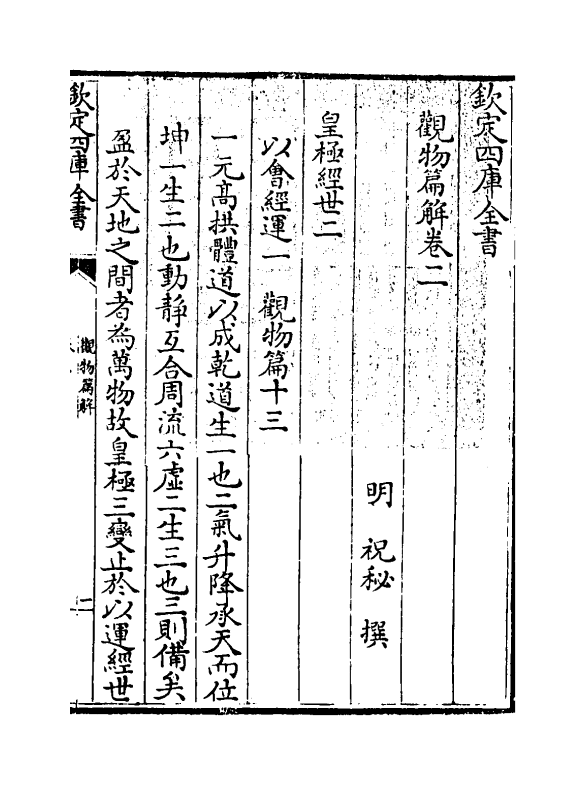 欽定四庫全書
觀物篇解卷二
明 祝祕 撰
皇極經世二
以會經運一 觀物篇十三
一元髙拱體道以成乾道生一也二氣升降承天而位
坤一生二也動靜互合周流六虛二生三也三則備矣
盈於天地之間者為萬物故皇極三變止於以運經世
欽定四庫全書
觀物篇解